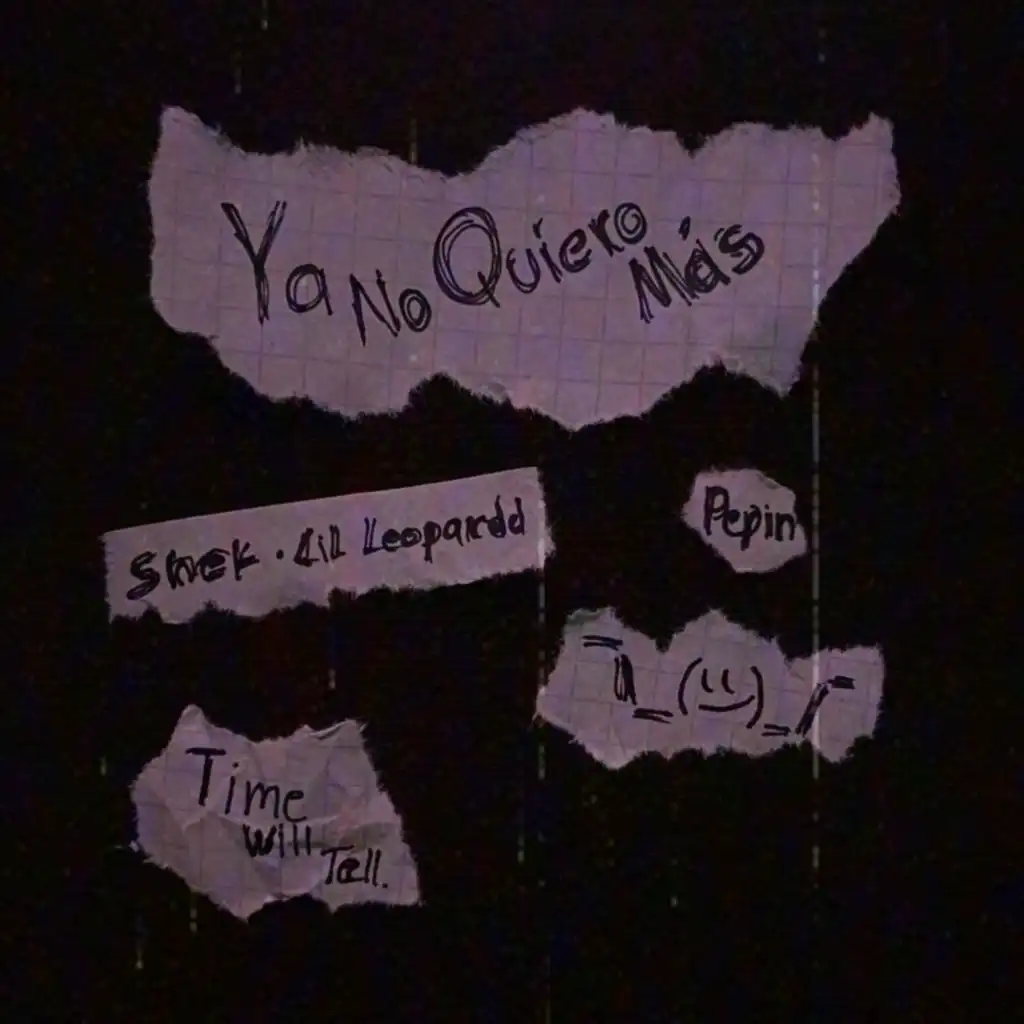 Ya No Quiero Más
Smek · Lil Leopardd
Pepin
¯\_(ツ)_/¯
Time
will
Tell.